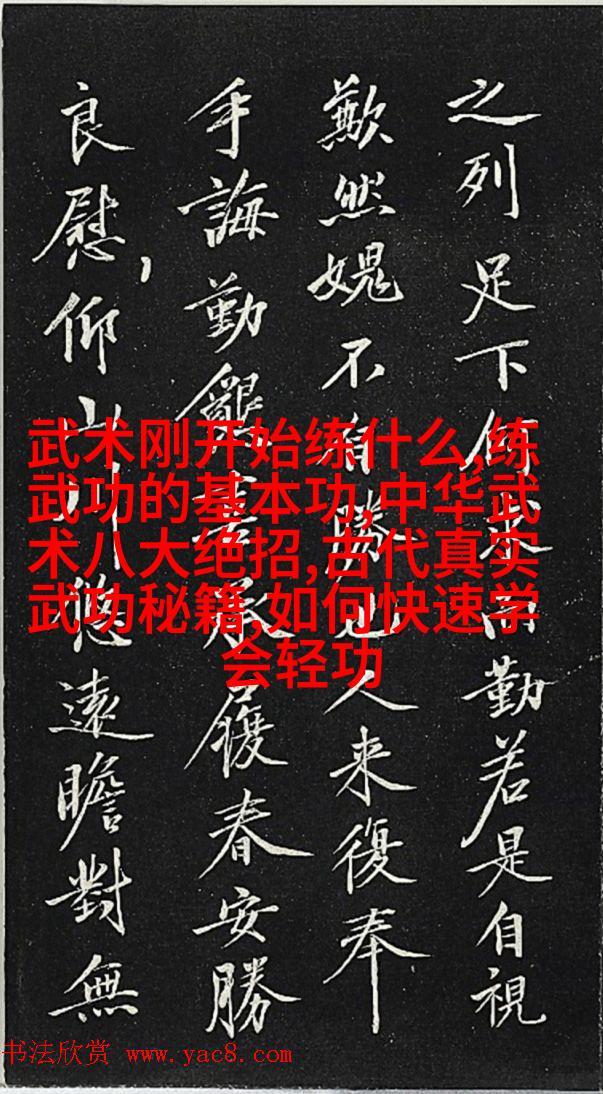 之列足下何勤若是自視
歉然媿不自勝也人来復奉
手誨勤懇喜承履春安勝
良慰,仰山川悠遠瞻對無
武术刚开始练什么,练
武功的基本功,中华武
术八大绝招,古代真实
武功秘籍,如何快速学
会轻功
书法欣赏 www.yac8.com